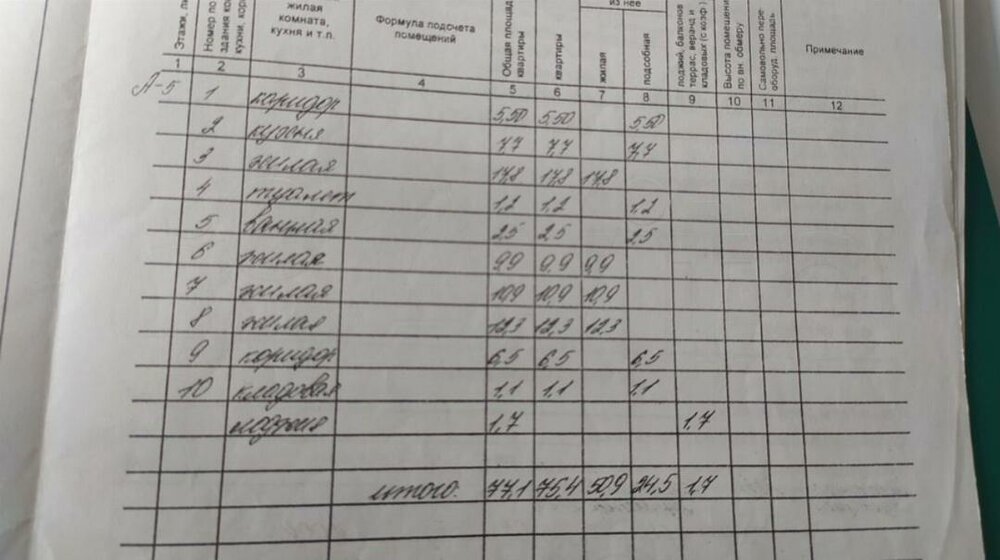 Этажи, ли
Номер по
здания ко
кухни, кор
жилая
комната,
кухня и т.п.
Формула подсчета
помещений
Общая площадь
квартиры
квартиры
из нее
жилая
подсобная
лоджий, балконов
террас, веранд и
кладовых (с коэф.)
Высота помещений
по вн. обмеру
Самовольно пере-
оборуд. площадь
Примечание
1 2 3 4 5 6 7 8 9 10 11 12
А-5 1 коридор 5,50 5,50 5,50
2 кухня 7,7 7,7 7,7
3 жилая 17,8 17,8 17,8
4 туалет 1,2 1,2 1,2
5 ванная 2,5 2,5 2,5
6 жилая 9,9 9,9 9,9
7 жилая 10,9 10,9 10,9
8 жилая 12,3 12,3 12,3
9 коридор 6,5 6,5 6,5
10 кладовая 1,1 1,1 1,1
лоджия 1,7 1,7
итого: 77,1 75,4 50,9 24,5 1,7